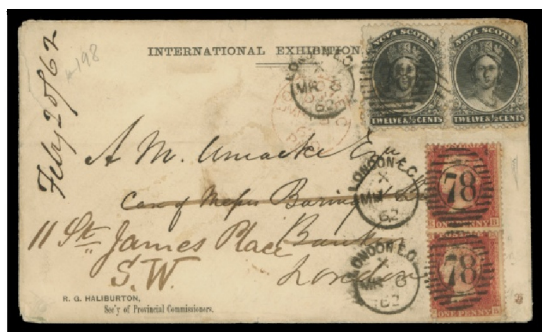 #198
Feby 20/62
INTERNATIONAL EXHIBITION
NOVA SCOTIA
TWELVE & ½ CENTS
NOVA SCOTIA
TWELVE & ½ CENTS
LONDON E.C.
X
MR 8
62
A. M. Uniacke Esq
Care of Messrs Baring
Bank
London
11 St. James Place
S.W.
LONDON E.C.
X
MR 8
62
78
ONE PENNY
LONDON E.C.
X
MR 8
62
78
ONE PENNY
R. G. HALIBURTON,
Sec'y of Provincial Commissioners.